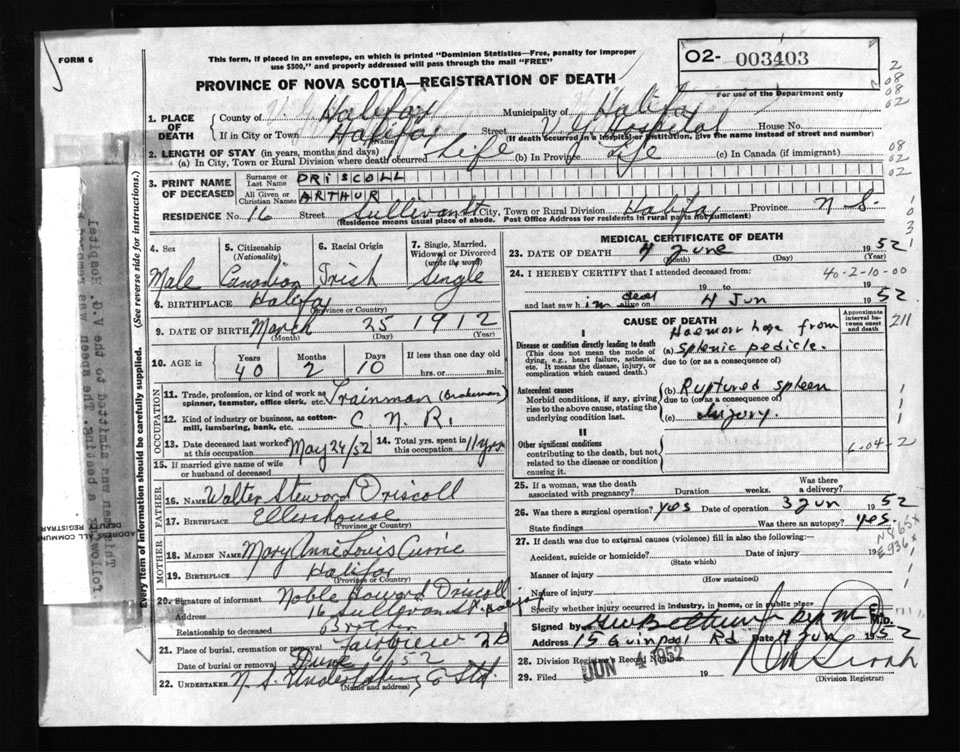 FORM 6
This form, if placed in an envelope, on which is printed "Dominion Statistics—Free, penalty for improper
use $300," and properly addressed will pass through the mail "FREE"
O2- 003403
PROVINCE OF NOVA SCOTIA—REGISTRATION OF DEATH
For use of the Department only
2
08
08
02
1. PLACE OF DEATH
County of Halifax Municipality of Halifax
If in City or Town Halifax Street V. G. Hospital House No.
(Name) (If death occurred in a hospital or institution, give the name instead of street and number)
2. LENGTH OF STAY (in years, months and days)
(a) In City, Town or Rural Division where death occurred Life (b) In Province Life (c) In Canada (if immigrant)
08
02
02
3. PRINT NAME OF DECEASED
Surname or Last Name DRISCOLL
All Given or Christian Names ARTHUR
RESIDENCE No. 16 Street Sullivan St. City, Town or Rural Division Halifax Province N S.
(Residence means usual place of abode. Post Office Address for residents in rural parts not sufficient)
4. Sex Male
5. Citizenship (Nationality) Canadian
6. Racial Origin Irish
7. Single, Married, Widowed or Divorced (write the word) Single
8. BIRTHPLACE Halifax
(Province or Country)
9. DATE OF BIRTH March 25 1912
(Month) (Day) (Year)
10. AGE in Years 40 Months 2 Days 10 If less than one day old
hrs. or min.
OCCUPATION
11. Trade, profession, or kind of work as spinner, teamster, office clerk, etc. Trainman (Brakeman)
12. Kind of industry or business, as cotton-mill, lumbering, bank, etc. C. N. R.
13. Date deceased last worked at this occupation May 24/52 14. Total yrs. spent in this occupation 11 yrs
15. If married give name of wife or husband of deceased
FATHER
16. Name Walter Steward Driscoll
17. BIRTHPLACE Ellershouse
(Province or Country)
MOTHER
18. MAIDEN NAME Mary Anne Louis Currie
19. BIRTHPLACE Halifax
(Province or Country)
20. Signature of informant Noble Howard Driscoll
Address 16 Sullivan St. Halifax
Relationship to deceased Brother
21. Place of burial, cremation or removal Fairview
Date of burial or removal June 6/52
22. UNDERTAKER N. S. Undertaking Co Ltd.
(Name and address)
MEDICAL CERTIFICATE OF DEATH
23. DATE OF DEATH 4 June 1952
(Month) (Day) (Year)
24. I HEREBY CERTIFY that I attended deceased from: 40-2-10-00
19 to 19
and last saw h im dead alive on 4 Jun 1952
CAUSE OF DEATH
Approximate interval between onset and death
211
I
Disease or condition directly leading to death
(This does not mean the mode of dying, e.g., heart failure, asthenia, etc. It means the disease, injury, or complication which caused death.)
Haemorrhage from
(a) splenic pedicle.
due to (or as a consequence of)
Antecedent causes
Morbid conditions, if any, giving rise to the above cause, stating the underlying condition last.
(b) Ruptured spleen
due to (or as a consequence of)
(c) Injury.
II
Other significant conditions
contributing to the death, but not related to the disease or condition causing it.
6-04-2
25. If a woman, was the death associated with pregnancy? Duration weeks. Was there a delivery?
26. Was there a surgical operation? yes Date of operation 3 Jun 1952
State findings Was there an autopsy? yes.
N865x
E936x
27. If death was due to external causes (violence) fill in also the following:
Accident, suicide or homicide? Date of injury 19
(State which)
Manner of injury
(How sustained)
Nature of injury
Specify whether injury occurred in industry, in home, or in public place
Signed by M.D.
Address 15 Quinpool Rd Date 4 Jun 1952
28. Division Registrar's Record Number
29. Filed JUN 4 1952 19
(Division Registrar)
Every item of information should be carefully supplied. (See reverse side for instructions.)
ADDRESS ALL COMMUNI
DEPUTY REGISTRAR